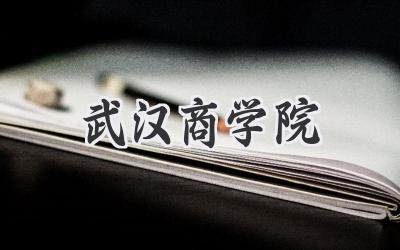 武汉商学院